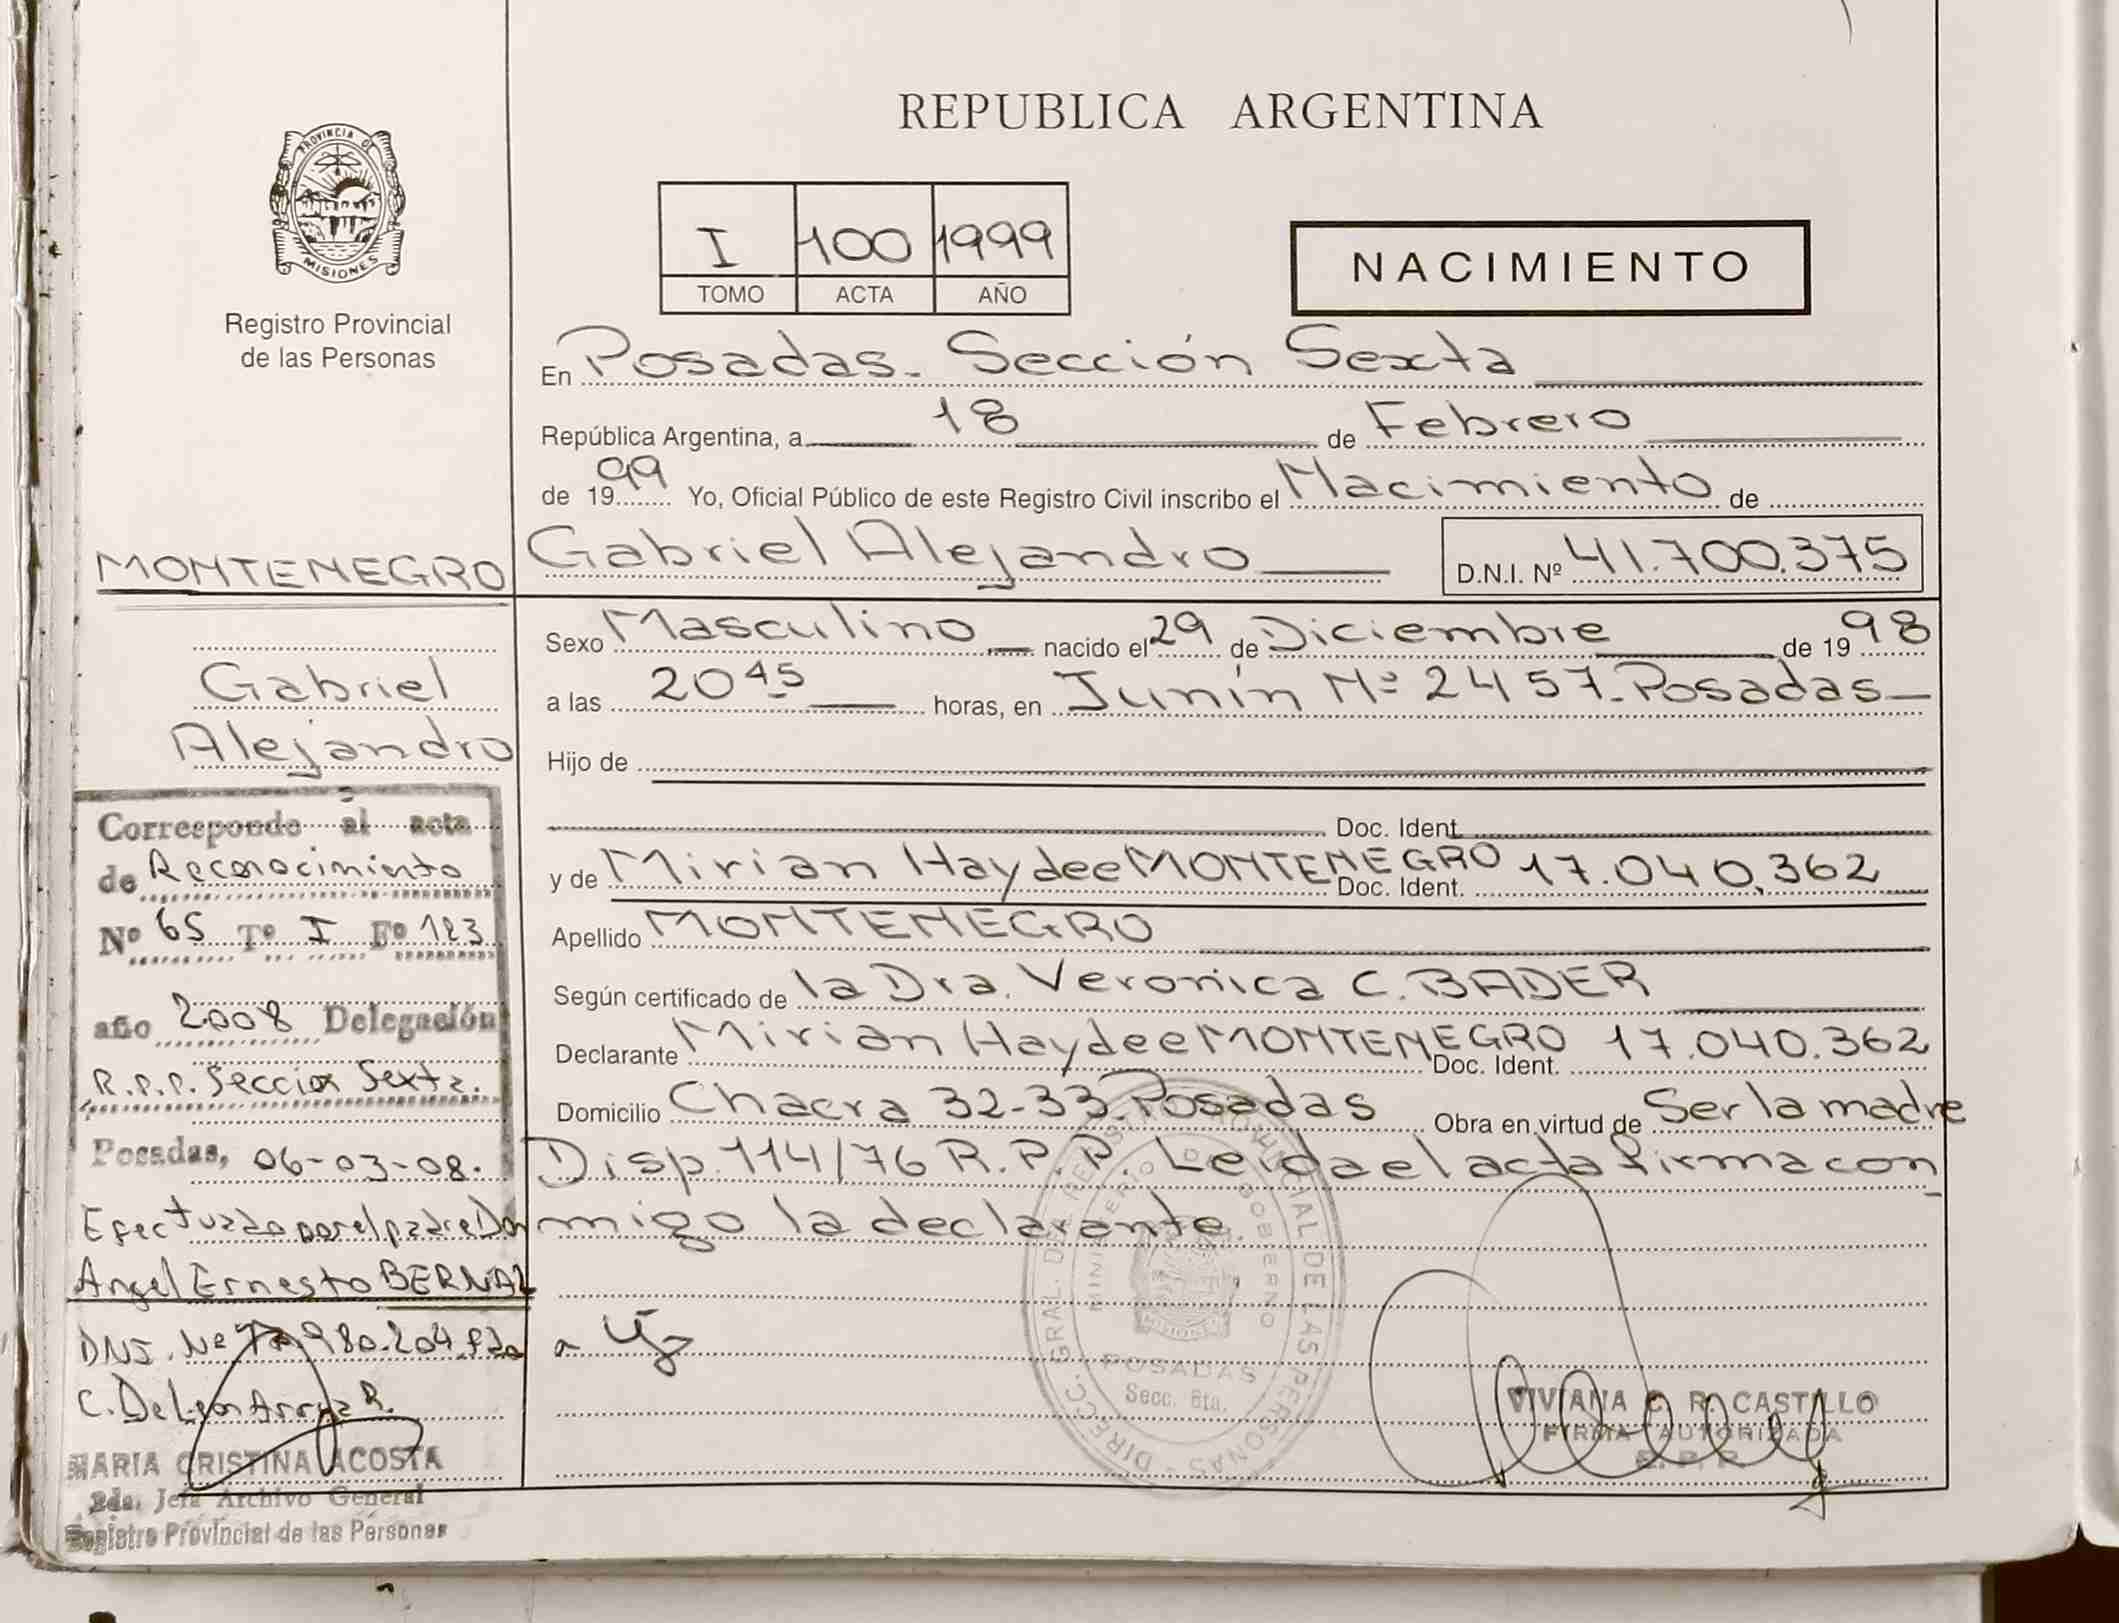 REPUBLICA ARGENTINA
PROVINCIA DE
MISIONES
Registro Provincial
de las Personas
I 100 1999
TOMO ACTA AÑO
NACIMIENTO
En Posadas. Sección Sexta
República Argentina, a 18 de Febrero
de 1999 Yo, Oficial Público de este Registro Civil inscribo el Nacimiento de
MONTENEGRO Gabriel Alejandro D.N.I. Nº 41.700.375
Sexo Masculino nacido el 29 de Diciembre de 1998
a las 20 45 horas, en Junín Nº 2457. Posadas
Hijo de
Doc. Ident.
y de Mirian Haydee MONTENEGRO Doc. Ident. 17.040.362
Apellido MONTENEGRO
Según certificado de la Dra. Veronica C. BADER
Declarante Mirian Haydee MONTENEGRO Doc. Ident. 17.040.362
Domicilio Chacra 32-33. Posadas Obra en virtud de Ser la madre
Disp. 114/76 R.P.P. Leida el acta firma con
migo la declarante.
Gabriel
Alejandro
Corresponde al acta
de Reconocimiento
Nº 65 Tº I Fº 123
año 2008 Delegación
R.P.P. Seccion Sexta.
Posadas, 06-03-08.
Efectuado por el padre Don
Angel Ernesto BERNAL
DNI. Nº 980.204
C. De Leon
MARIA CRISTINA ACOSTA
2da. Jefa Archivo General
Registro Provincial de las Personas
DIRECC. GRAL. DEL REGISTRO PROVINCIAL DE LAS PERSONAS
MINISTERIO DE GOBIERNO
MISIONES
POSADAS
Secc. 6ta.
VIVIANA C. R. CASTILLO
FIRMA AUTORIZADA
R. P. P.